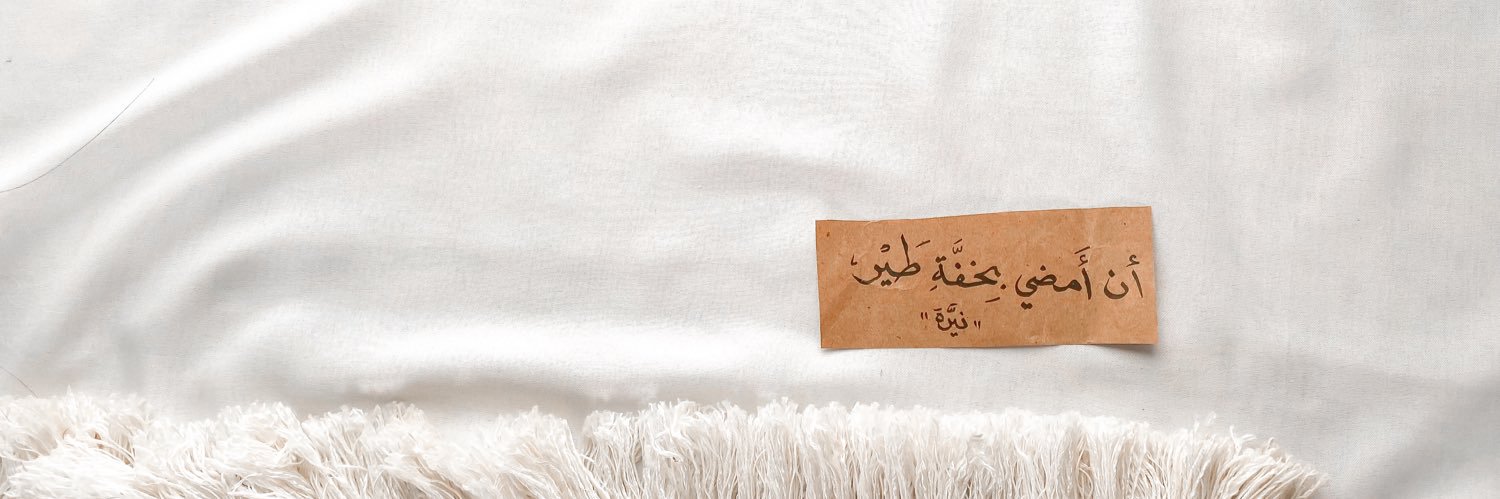 أن أَمضي بِخفَّةِ طَيْر،
"نيَّرَة"